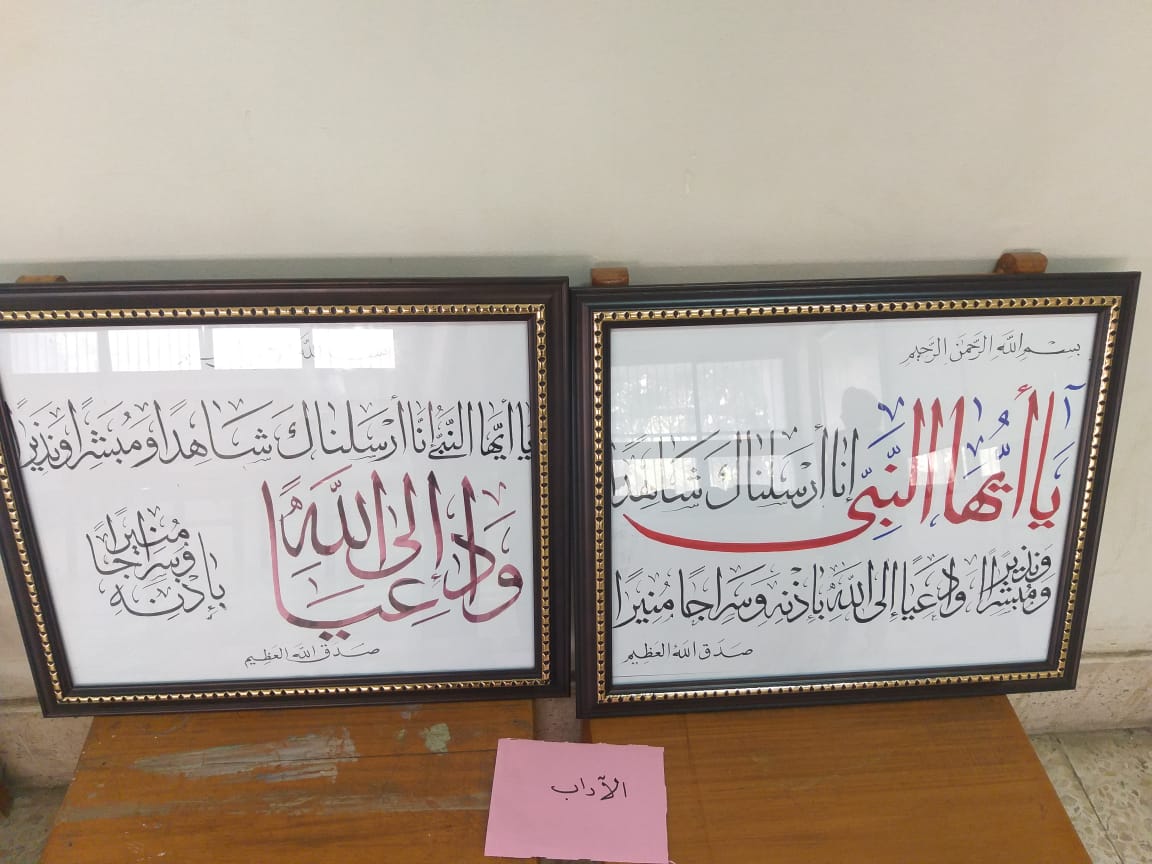 بسم الله الرحمن الرحيم
يا أيها النبي إنا أرسلناك شاهدا
ومبشرا ونذيرا وداعيا إلى الله بإذنه وسراجا منيرا
صدق الله العظيم
الله
يا أيها النبي إنا أرسلناك شاهدا ومبشرا ونذيرا
وداعيا إلى الله
بإذنه وسراجا منيرا
صدق الله العظيم
الآداب